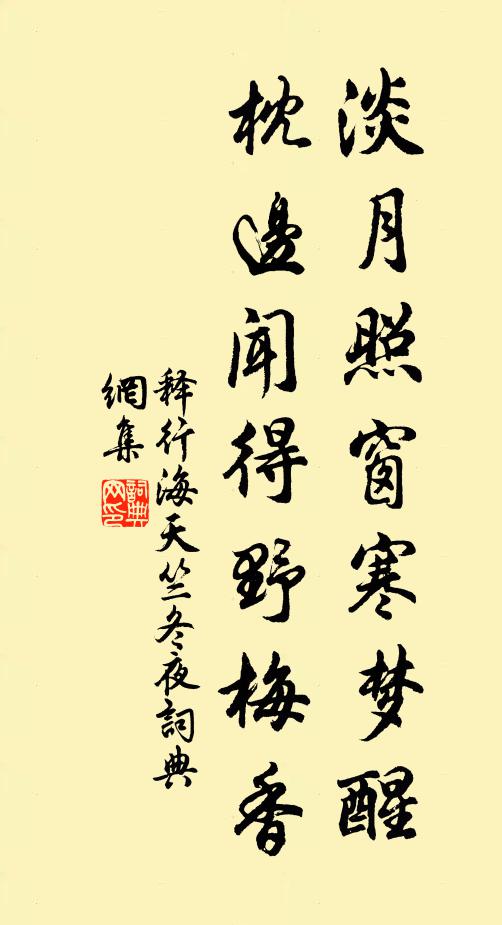 淡月照窗寒梦醒
枕邊聞得野梅香
释行海天竺冬夜詞典
網集
詞典
网印